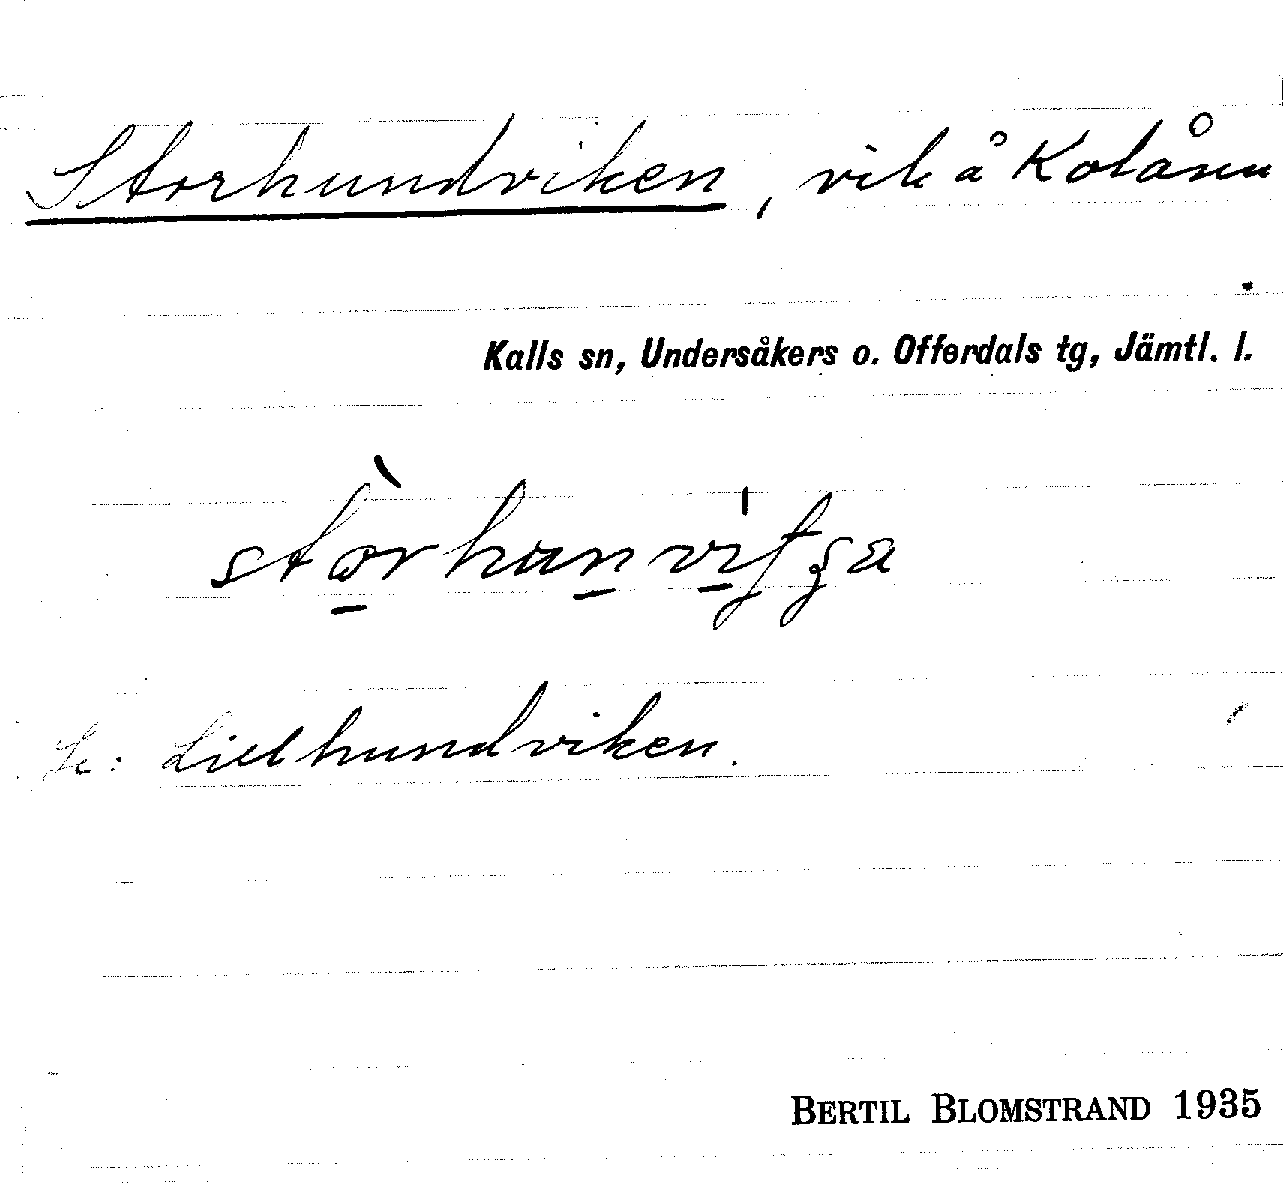 Storhundviken, vik å Kolåsen
Kalls sn, Undersåkers o. Offerdals tg, Jämtl. l.
Se: Lillhundviken.
BERTIL BLOMSTRAND 1935